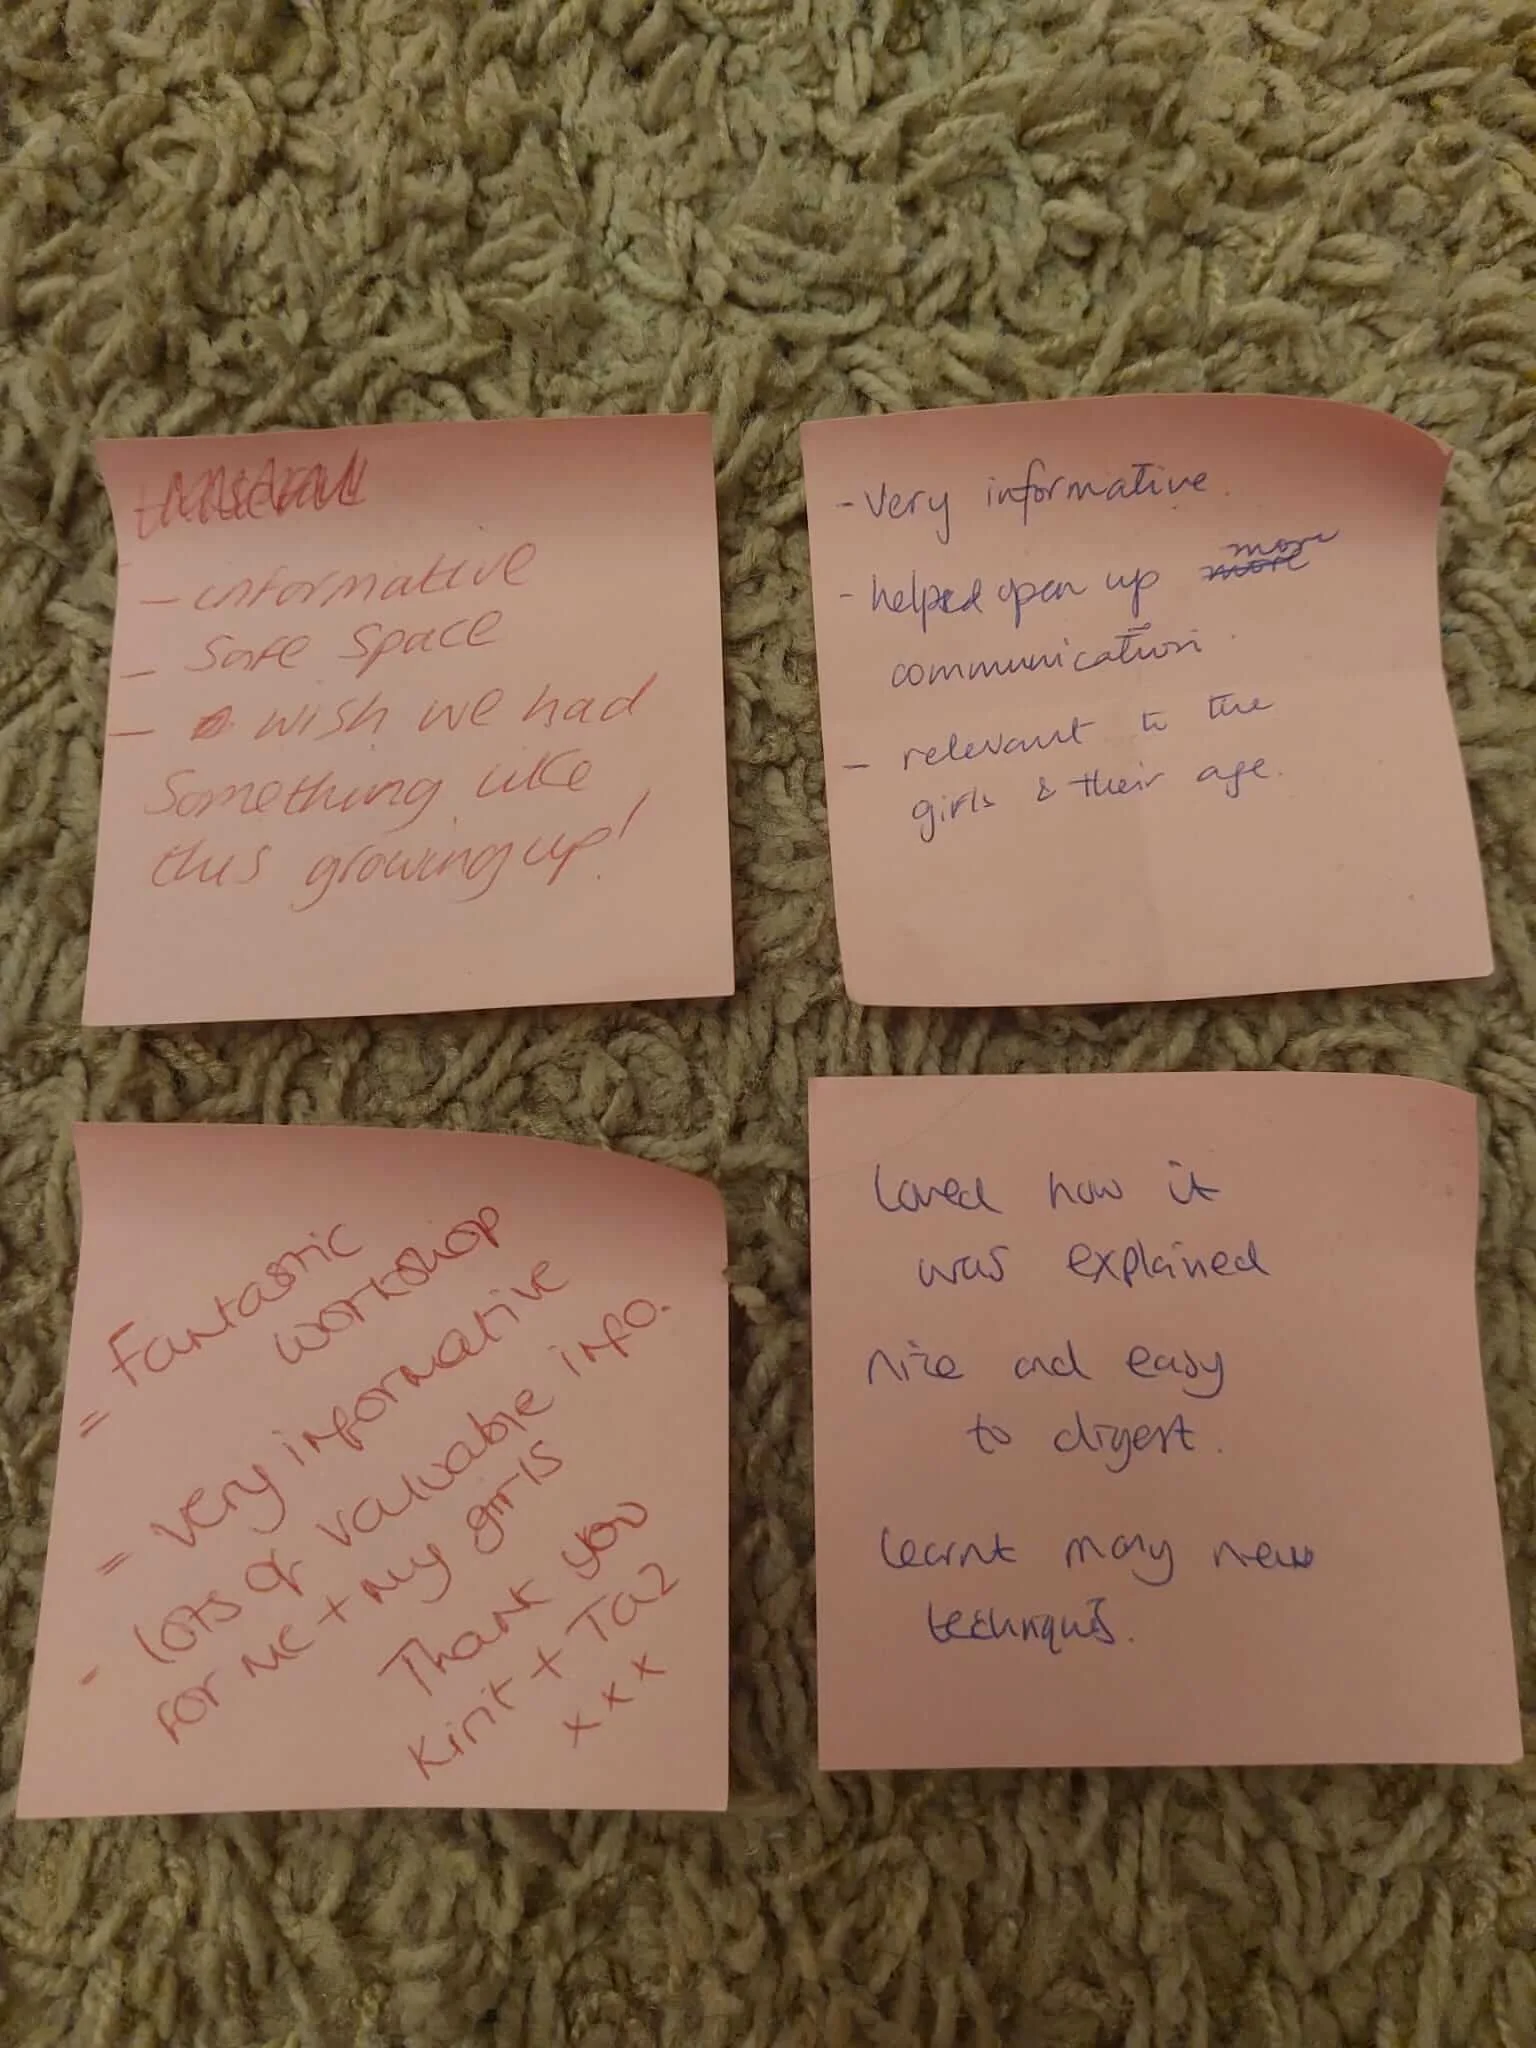 - informative
- Safe Space
- wish we had
Something like
this growing up!
- Very informative.
- helped open up more
communication.
- relevant to the
girls & their age.
= Fantastic
workshop
= very informative
- lots of valuable info.
for me + my girls
Thank you
Kirit + Taz
xxx
Loved how it
was explained
nice and easy
to digest.
learnt many new
techniques.